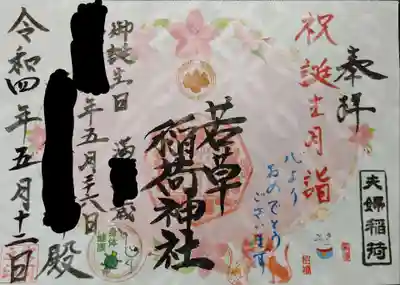 奉拝
夫婦稲荷
祝誕生月詣
心より
おめでとう
ございます
若草
稲荷神社
御誕生日 満 歳
年五月 日
殿
令和四年五月十二日
身体
健康
招福